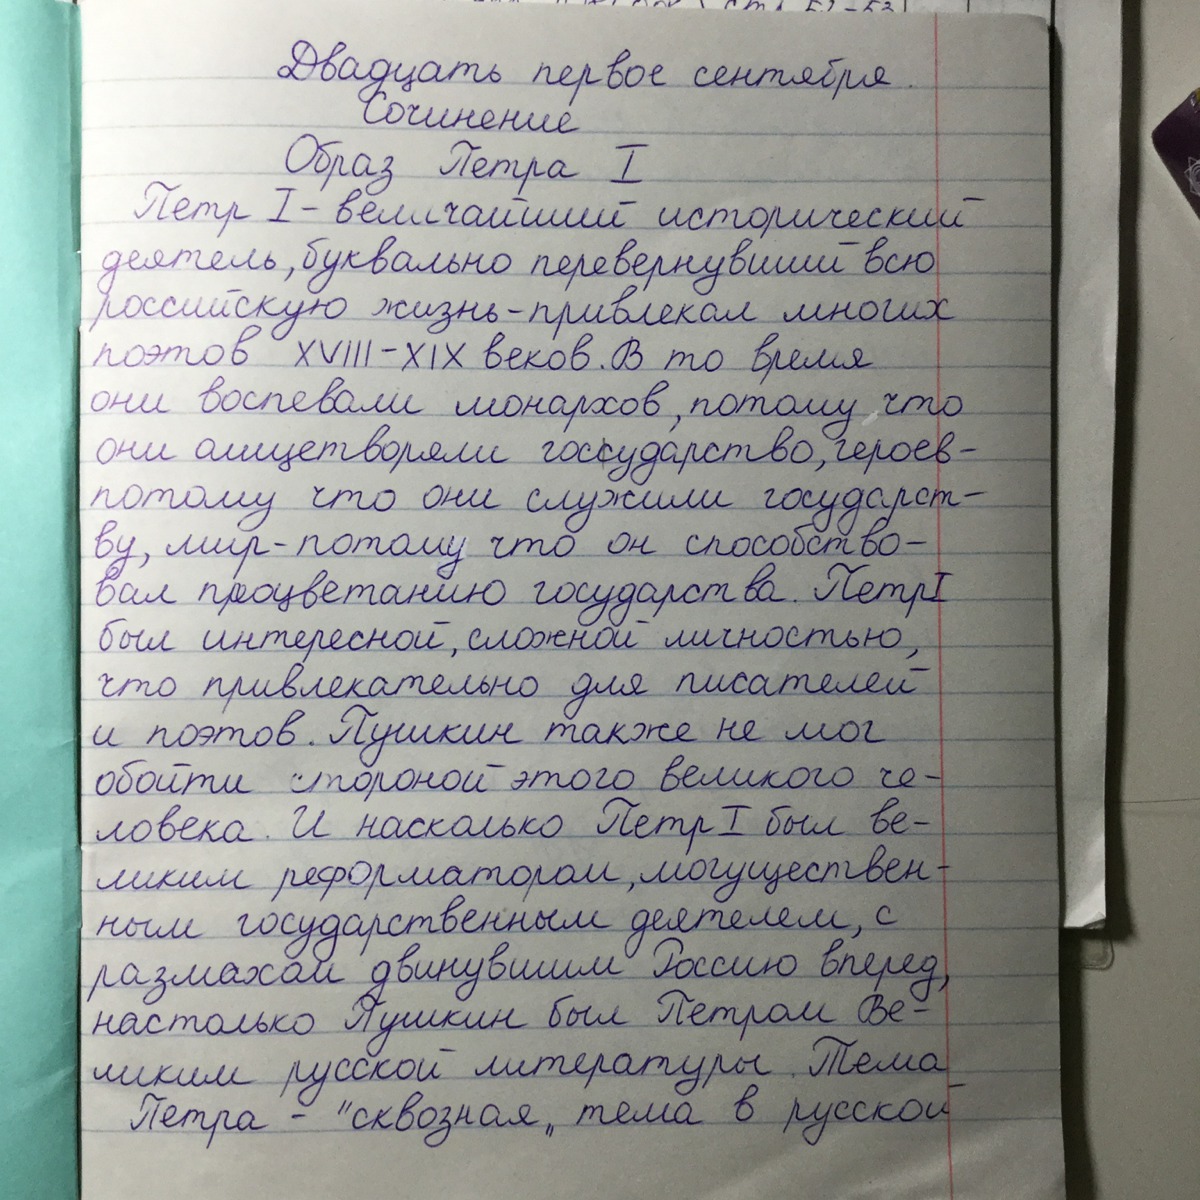 Двадцать первое сентября.
Сочинение
Образ Петра I
Петр I - величайший исторический
деятель, буквально перевернувший всю
российскую жизнь - привлекал многих
поэтов XVIII - XIX веков. В то время
они воспевали монархов, потому что
они олицетворяли государство, героев -
потому что они служили государст-
ву, мир - потому что он способство-
вал процветанию государства. Петр I
был интересной, сложной личностью,
что привлекательно для писателей
и поэтов. Пушкин также не мог
обойти стороной этого великого че-
ловека. И насколько Петр I был ве-
ликим реформатором, могуществен-
ным государственным деятелем, с
размахом двинувшим Россию вперед,
настолько Пушкин был Петром Ве-
ликим русской литературы. Тема
Петра - "сквозная„ тема в русской